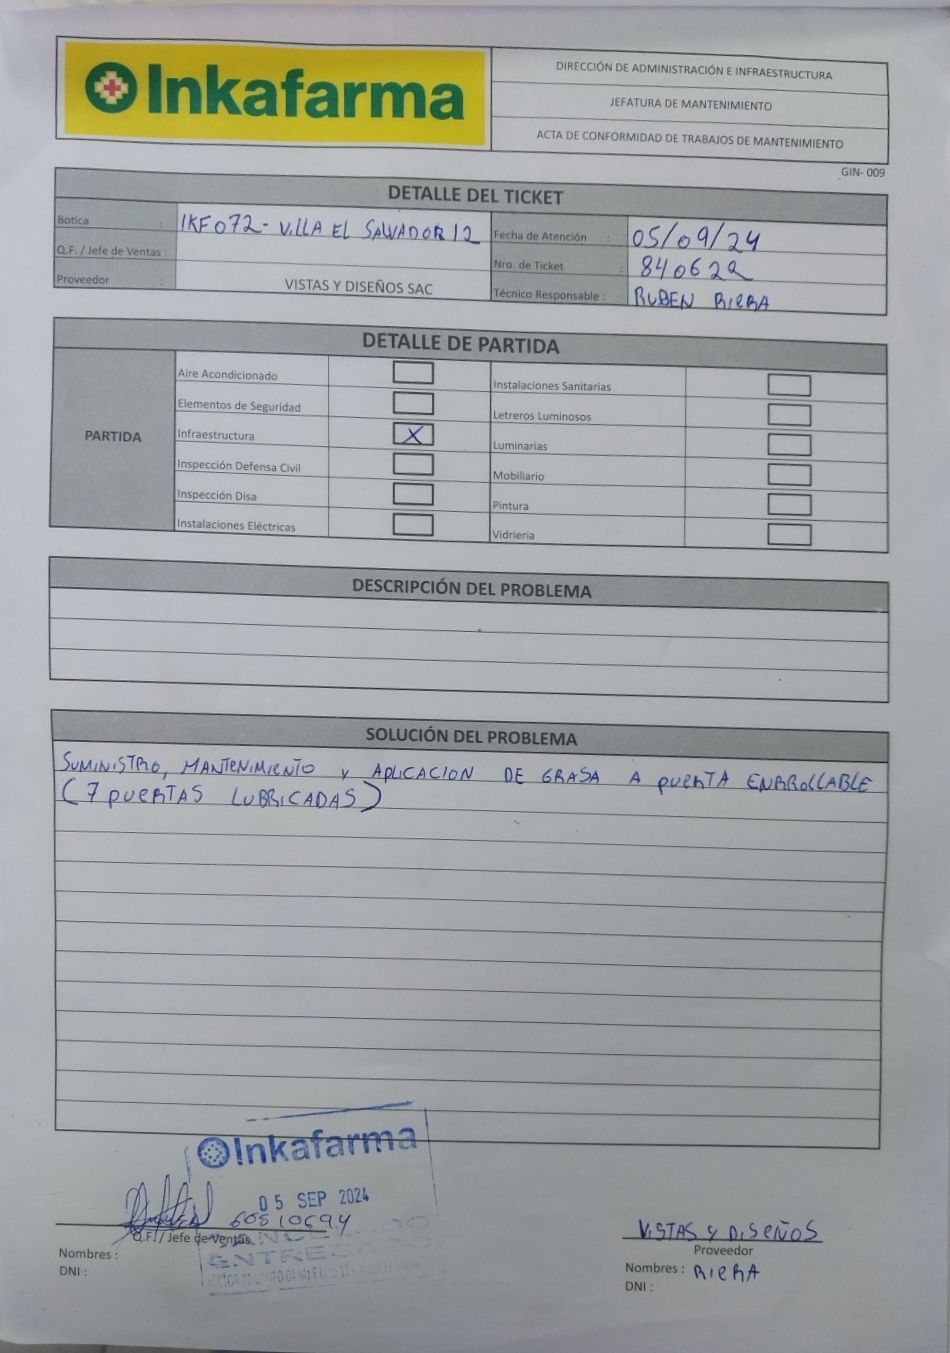 Inkafarma
DIRECCIÓN DE ADMINISTRACIÓN E INFRAESTRUCTURA
JEFATURA DE MANTENIMIENTO
ACTA DE CONFORMIDAD DE TRABAJOS DE MANTENIMIENTO
GIN- 009
DETALLE DEL TICKET
Botica : IKF072- VILLA EL SALVADOR 12
Fecha de Atención : 05/09/24
Q.F. / Jefe de Ventas :
Nro. de Ticket : 840622
Proveedor : VISTAS Y DISEÑOS SAC
Técnico Responsable : RUBEN RIERA
DETALLE DE PARTIDA
PARTIDA
Aire Acondicionado
Instalaciones Sanitarias
Elementos de Seguridad
Letreros Luminosos
Infraestructura X
Luminarias
Inspección Defensa Civil
Mobiliario
Inspección Disa
Pintura
Instalaciones Eléctricas
Vidrieria
DESCRIPCIÓN DEL PROBLEMA
SOLUCIÓN DEL PROBLEMA
SUMINISTRO, MANTENIMIENTO Y APLICACION DE GRASA A PUERTA ENRROLLABLE
(7 PUERTAS LUBRICADAS)
Inkafarma
05 SEP 2024
60510694
Q.F. / Jefe de Ventas
Nombres :
DNI :
CANCELADO
ENTREGADO
VISTAS Y DISEÑOS
Proveedor
Nombres : RIERA
DNI :